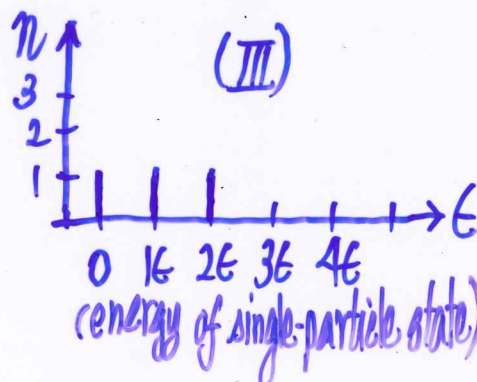 n
(III)
3
2
1
ϵ
0 1ϵ 2ϵ 3ϵ 4ϵ
(energy of single-particle state)